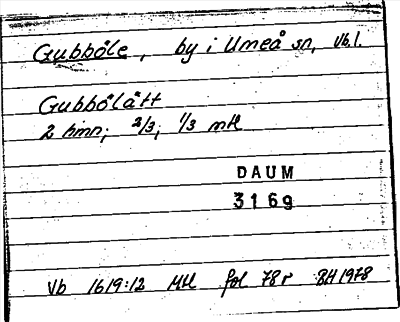 Gubböle, by i Umeå sn, Vb.l.
Gubbölätt
2 hmn; 2/3, 1/3 mtl
DAUM
3169
Vb 1619:12 Mtl fol 78r BH 1978